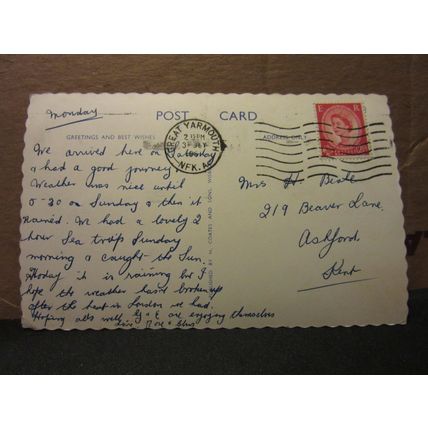 Monday
POST CARD
GREETINGS AND BEST WISHES
ADDRESS ONLY
GREAT YARMOUTH
2 15 PM
NFK. A
E R
We arrived here on Saturday
& had a good journey
Weather was nice until
5-30 on Sunday & then it
rained. We had a lovely 2
hour Sea trip Sunday
morning & caught the Sun.
today it is raining but I
hope the weather hasnt broken up
after the heat in London we had.
Hoping alls well. & E are enjoying themselves
Love
Miss H. Beale
219 Beaver Lane.
Ashford.
Kent